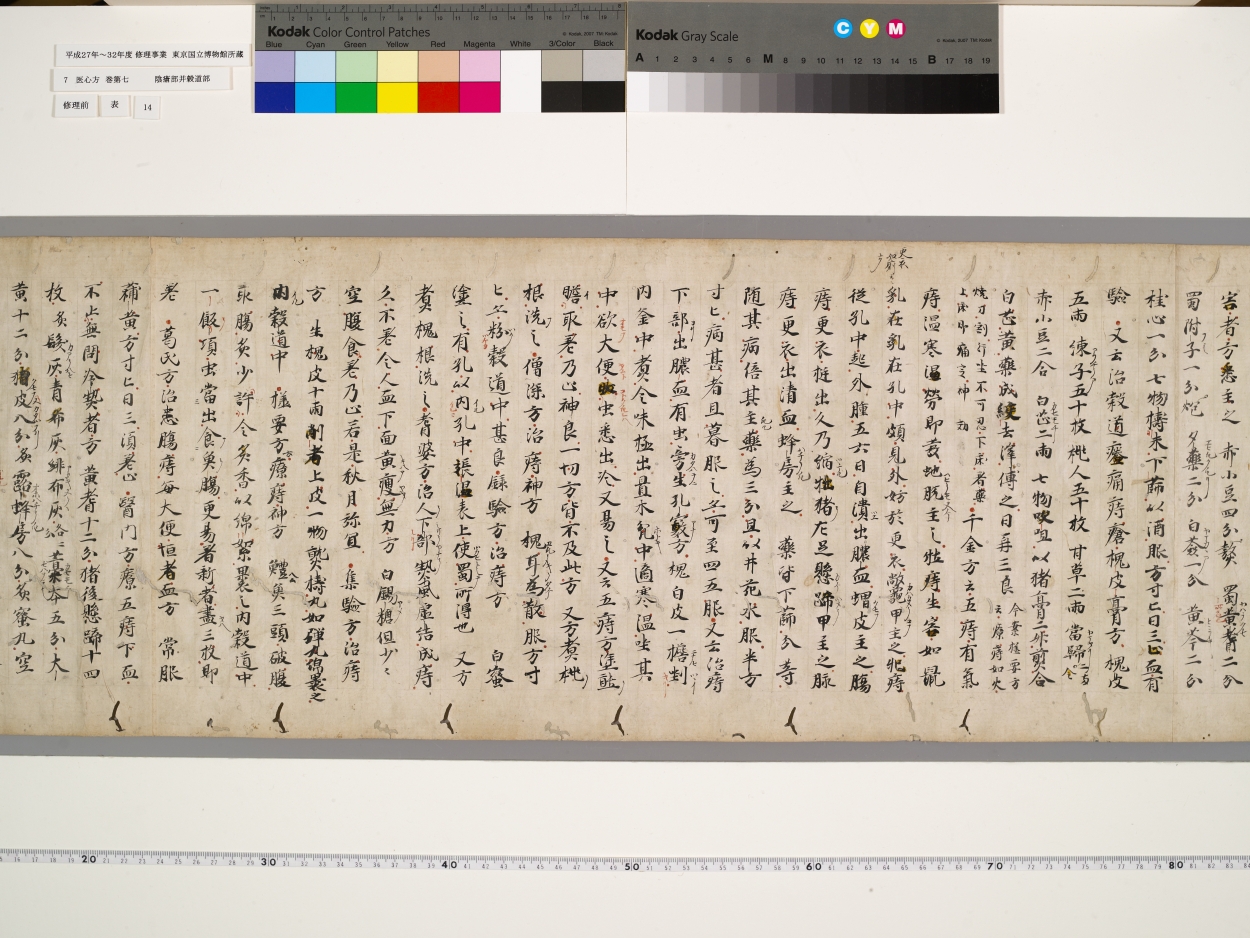 平成27年～32年度 修理事業 東京国立博物館所蔵
7 医心方 巻第七 陰瘡部并穀道部
修理前 表 14
Kodak Color Control Patches
© Kodak, 2007 TM: Kodak
Blue Cyan Green Yellow Red Magenta White 3/Color Black
Kodak Gray Scale
C Y M
© Kodak, 2007 TM: Kodak
A 1 2 3 4 5 6 M 8 9 10 11 12 13 14 15 B 17 18 19
害者方悉主之 赤小豆四分熬 蜀黄耆二分
蜀附子一分炮 夕藥二分 白蘞一分 黄芩二分
桂心一分 七物擣末下篩以酒服方寸匕日三止血有
驗 又云治穀道癢痛痔瘡槐皮膏方 槐皮
五兩 練子五十枚 桃人五十枚 甘草二兩 當歸二兩
赤小豆二合 白芷二兩 七物㕮咀以猪膏二升煎合
白芷黄藥成練去滓傅之日再三良
今案極要方云療痔如火
燒刀割行坐不可忍下床者藥上後即痛令神
千金方云五痔有氣
痔温寒温勞即發蛇脱主之 牡痔生害如鼠
乳在乳在孔中頗見外妨於更衣鼈甲主之 牝痔
從孔中起外腫五六日自潰出膿血猬皮主之 腸
痔更衣挺出久乃縮牡猪左足懸蹄甲主之 脉
痔更衣出清血蜂房主之 藥皆下篩分等
随其病倍其主藥為三分且以井花水服半方
寸匕病甚者且暮服之亦可至四五服 又云治痔
下部出膿血有虫旁生孔竅方 槐白皮一檐剉
内釜中煮令味極出置木瓫中適寒温坐其
中欲大便虫悉出冷又易之 又云五痔方塗䖝
膽取差乃止神良一切方皆不及此方 又方煮桃
根洗之 僧深方治痔神方 槐耳為散服方寸
匕亦粉穀道中甚良 錄驗方治痔方 白蜜
塗之有孔以内孔中振温表上使蜀所得也 又方
煮槐根洗之 耆婆方治人下部熱風虚結成痔
久不差令人血下面黄瘦無力方 白䴏糖但少々
空腹食差乃止若是秋月弥宜 集驗方治痔
方 生槐皮十兩削者上皮一物熟擣丸如弾丸綿裹之
内穀道中 極要方療痔神方 鱧魚三頭破腹
取腸炙少許令炙香以綿絮裹之内穀道中
一飯頃虫當出食魚腸更易者新者盡三枚即
差 葛氏方治患腸痔毎大便恒者血方 常服
蒲黄方寸匕日三須差止 醫門方療五痔下血
不止無問冷熱者方 黄耆十二分猪後懸蹄十四
枚炙髮灰青布灰緋布灰洛二藁本五分大
黄十二分猬皮八分炙露蜂房八分炙蜜丸空
20 30 40 50 60 70 80